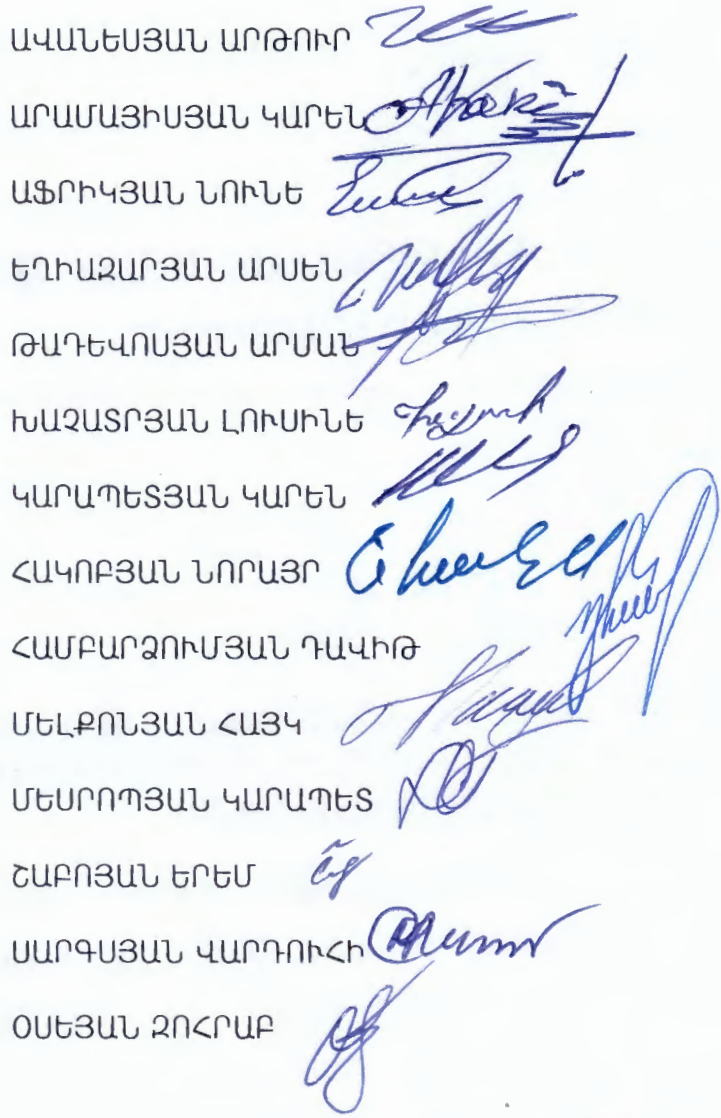 ԱՎԱՆԵՍՅԱՆ ԱՐԹՈՒՐ
ԱՐԱՄԱՅԻՍՅԱՆ ԿԱՐԵՆ
ԱՖՐԻԿՅԱՆ ՆՈՒՆԵ
ԵՂԻԱԶԱՐՅԱՆ ԱՐՍԵՆ
ԹԱԴԵՎՈՍՅԱՆ ԱՐՄԱՆ
ԽԱՉԱՏՐՅԱՆ ԼՈՒՍԻՆԵ
ԿԱՐԱՊԵՏՅԱՆ ԿԱՐԵՆ
ՀԱԿՈԲՅԱՆ ՆՈՐԱՅՐ
ՀԱՄԲԱՐՁՈՒՄՅԱՆ ԴԱՎԻԹ
ՄԵԼՔՈՆՅԱՆ ՀԱՅԿ
ՄԵՍՐՈՊՅԱՆ ԿԱՐԱՊԵՏ
ՇԱԲՈՅԱՆ ԵՐԵՄ
ՍԱՐԳՍՅԱՆ ՎԱՐԴՈՒՀԻ
ՕՍԵՅԱՆ ԶՈՀՐԱԲ